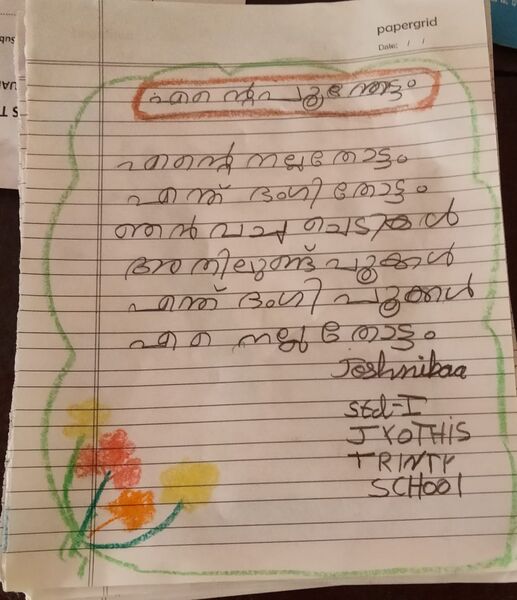 papergrid
Date: / /
എന്റെ പൂന്തോട്ടം
എന്റെ നല്ല തോട്ടം
എന്ത് ഭംഗി തോട്ടം
ഞൻ വച്ച ചെടികൾ
അതിലുണ്ട് പൂക്കൾ
എന്ത് ഭംഗി പൂക്കൾ
എ ന നല്ല തോട്ടം
Joshnibaa
std-I
JYOTHIS
TRINTY
SCHOOl